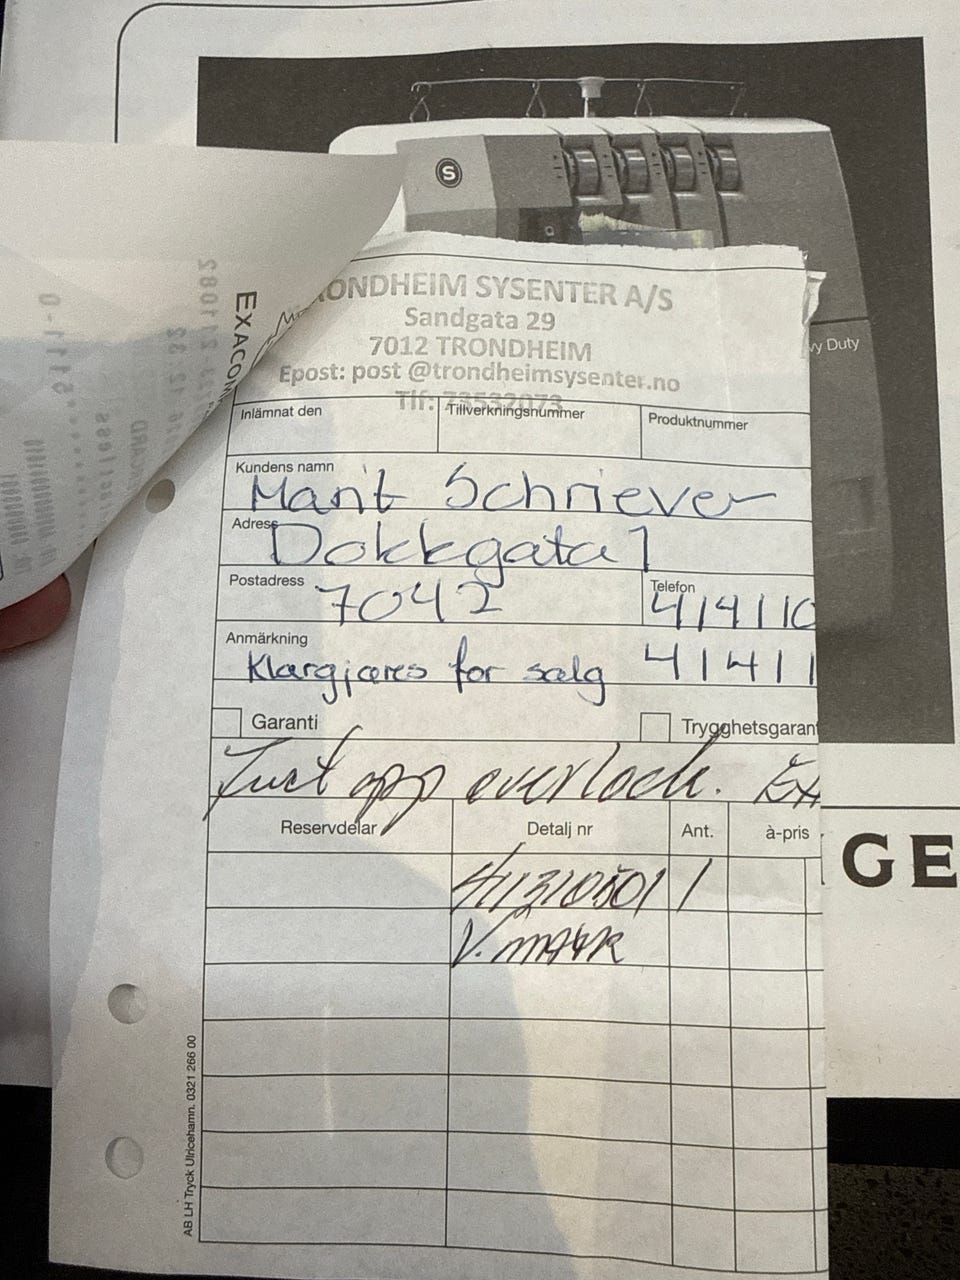 S
TRONDHEIM SYSENTER A/S
Sandgata 29
7012 TRONDHEIM
Epost: post @trondheimsysenter.no
Tlf: 73532073
vy Duty
EXACON
Inlämnat den
Tillverkningsnummer
Produktnummer
Kundens namn
Marit Schriever
Adress
Dokkgata 1
Postadress
7042
Telefon
414110
Anmärkning
Klargjøres for salg 41411
Garanti
Trygghetsgaran
opp overlock.
GE
Reservdelar Detalj nr Ant. à-pris
1
AB LH Tryck Ulricehamn. 0321 266 00